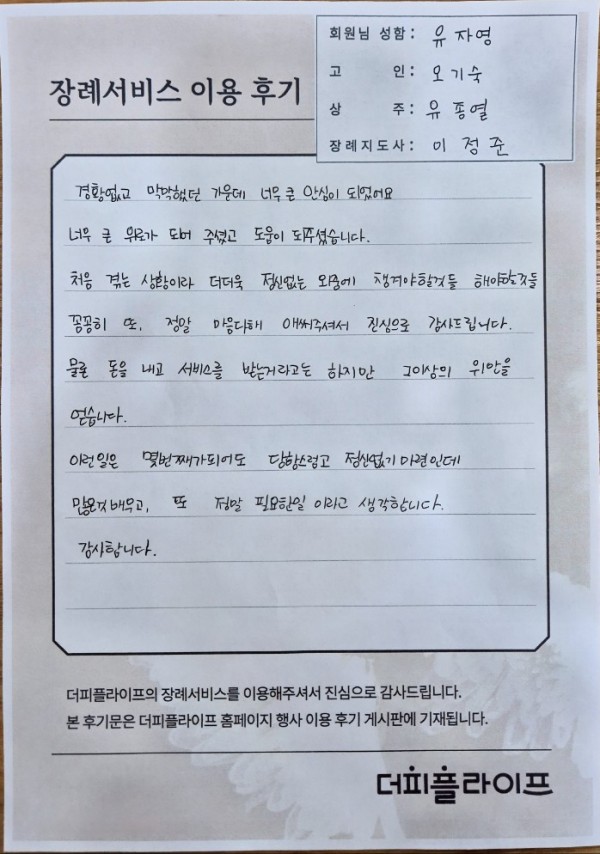 장례서비스 이용 후기
회원님 성함: 유자영
고 인: 오기숙
상 주: 유종열
장례지도사: 이정준
경황없고 막막했던 가운데 너무 큰 안심이 되었어요
너무 큰 위로가 되어 주셨고 도움이 되주셨습니다.
처음 겪는 상황이라 더더욱 정신없는 와중에 챙겨야할것들 해야할것들
꼼꼼히 또, 정말 마음다해 애써주셔서 진심으로 감사드립니다.
물론 돈을 내고 서비스를 받는거라고는 하지만 그이상의 위안을
얻습니다.
이런일은 몇번째가되어도 당황스럽고 정신없기 마련인데
배우고, 또 정말 필요한일 이라고 생각합니다.
감사합니다.
더피플라이프의 장례서비스를 이용해주셔서 진심으로 감사드립니다.
본 후기문은 더피플라이프 홈페이지 행사 이용 후기 게시판에 기재됩니다.
더피플라이프